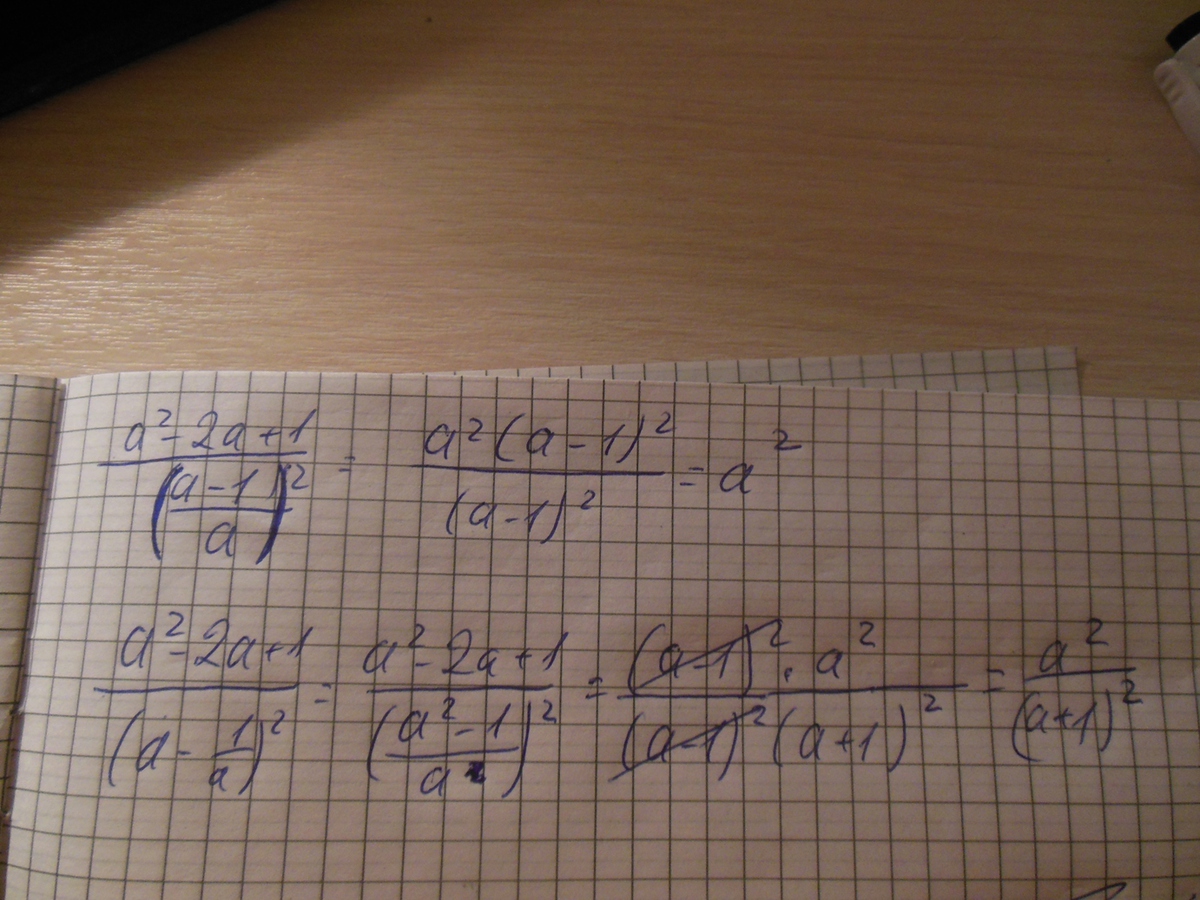 (a² - 2a + 1) / ((a - 1)/a)² = a²(a - 1)² / (a - 1)² = a²
(a² - 2a + 1) / (a - 1/a)² = (a² - 2a + 1) / ((a² - 1)/a)² = (a - 1)² · a² / (a - 1)² (a + 1)² = a² / (a + 1)²